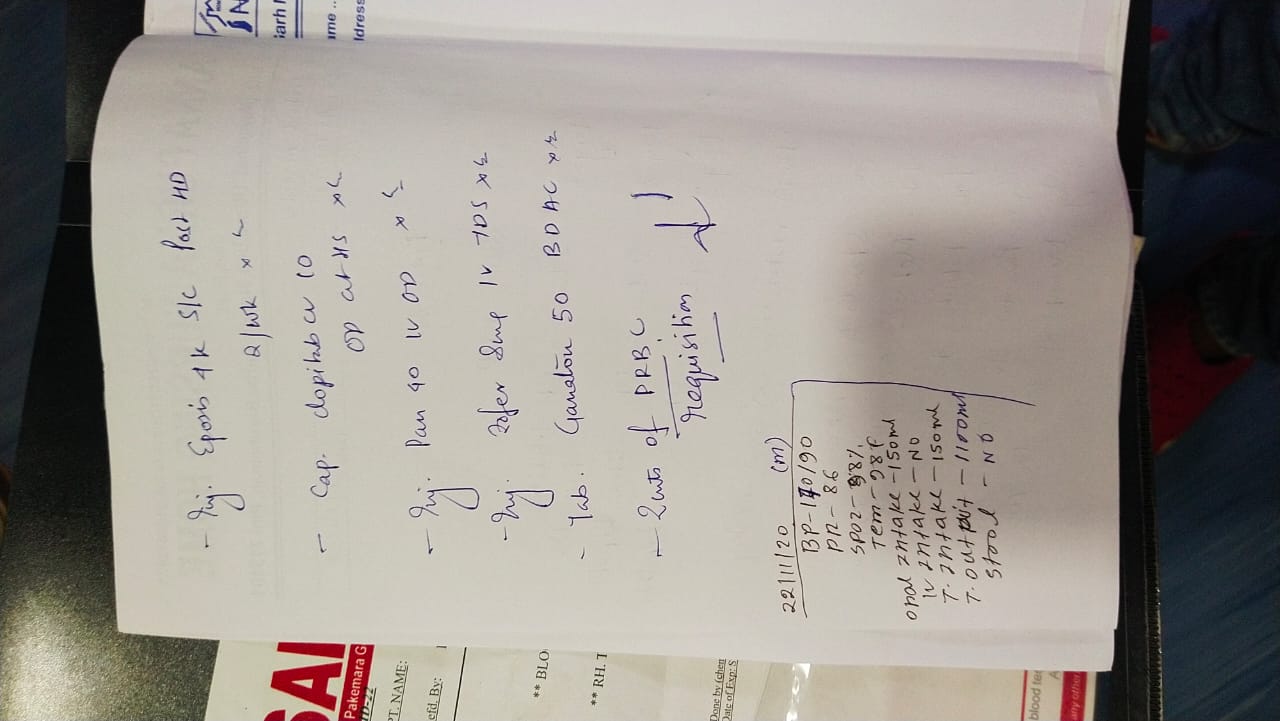 - Inj. Eposis 4K S/C Post HD
2/wk x
- Cap. Clopitab CV 10
OD at HS x
- Inj. Pan 40 IV OD x
- Inj. Zofer 8mg IV TDS x
- Tab. Ganaton 50 BD AC x
- 2 units of PRBC
requisition
22/11/20 (m)
BP-170/90
PR-86
SPO2-98%
Tem-98F
Oral Intake-150ml
IV Intake-NO
T. Intake-150ml
T. Output-1100ml
Stool-NO
iarh
ame ..
ddress
SAI
Pakemara G
PT. NAME:
efd. By:
** BLO
** RH. T
Done by (chem
Date of Exp: S
blood
any other